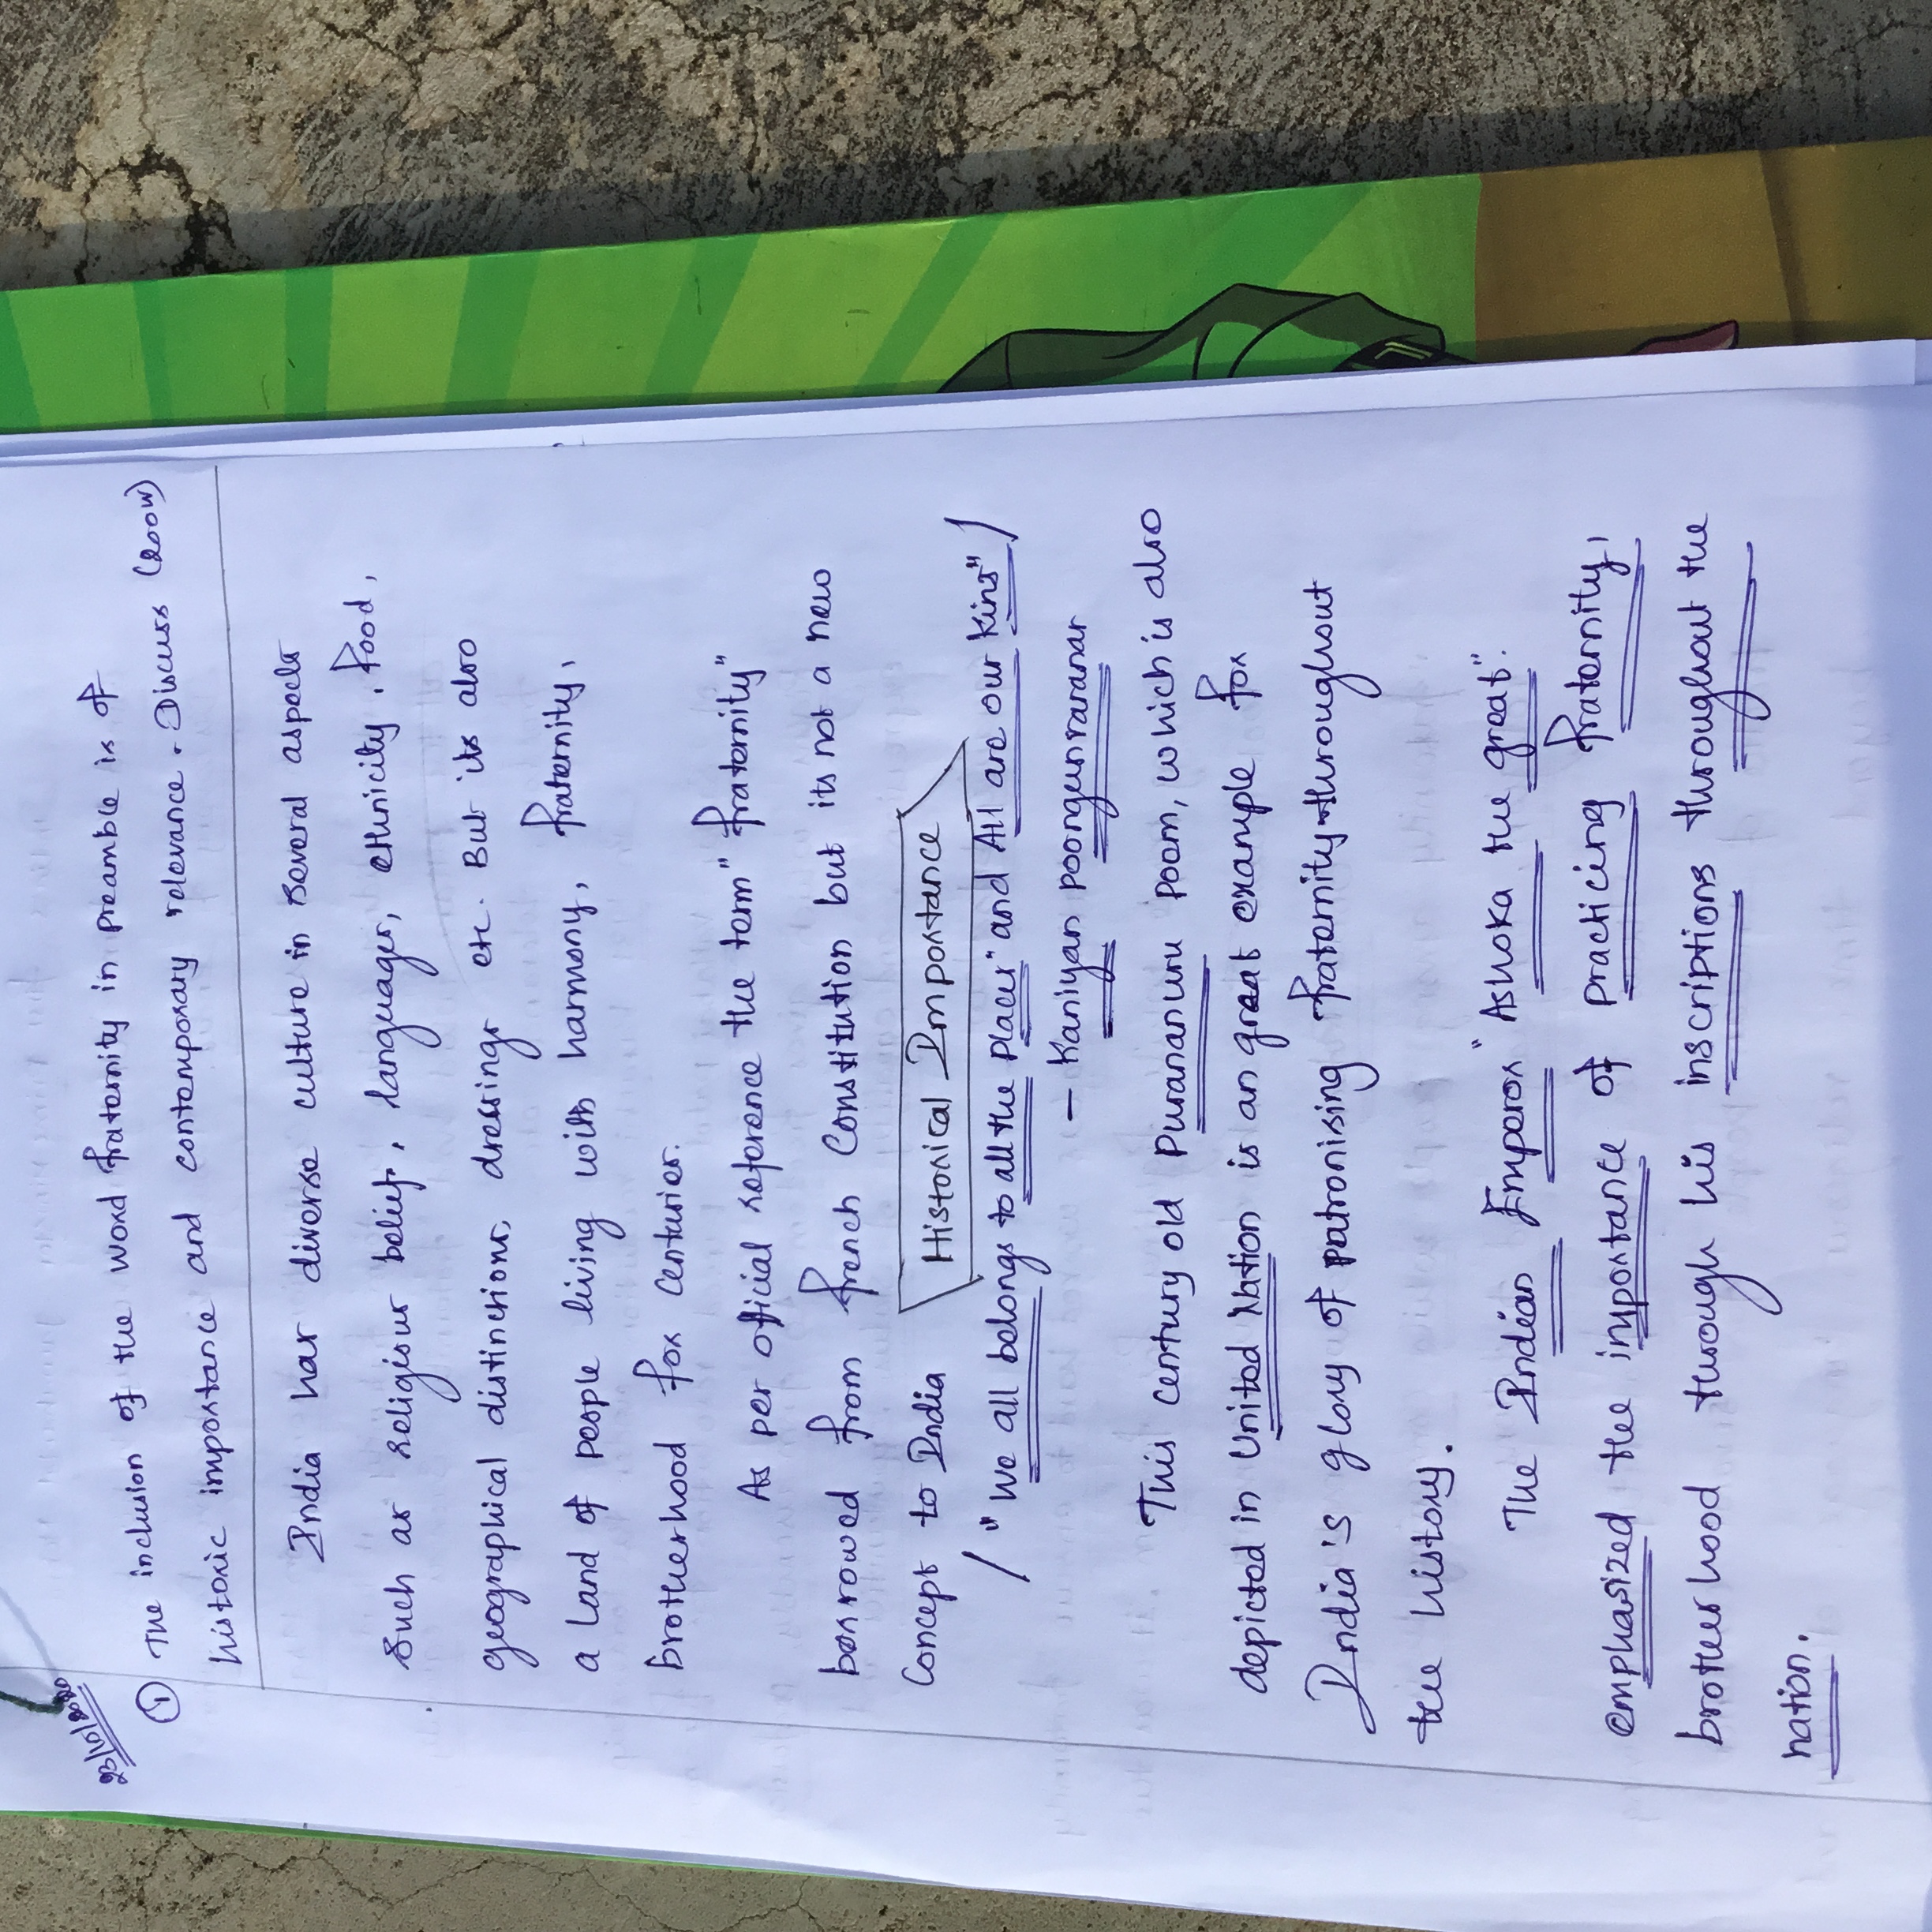 23/10/2020
① The inclusion of the word fraternity in preamble is of
historic importance and contemporary relevance. Discuss (200W)
India has diverse culture in several aspects
such as religious beliefs, languages, ethnicity, food,
geographical distinctions, dressings etc. But its also
a land of people living with harmony, fraternity,
brotherhood for centuries.
As per official reference the term "fraternity"
borrowed from french Constitution but its not a new
concept to India
Historical Importance
"We all belongs to all the places" and All are our kins"
- Kaniyan poongunranar
This century old Purananuru poem, which is also
depicted in United Nation is an great example for
India's glory of patronising fraternity throughout
the history.
The Indian Emperor "Ashoka the great".
emphasized the importance of practicing fraternity,
brotherhood through his inscriptions throughout the
nation.